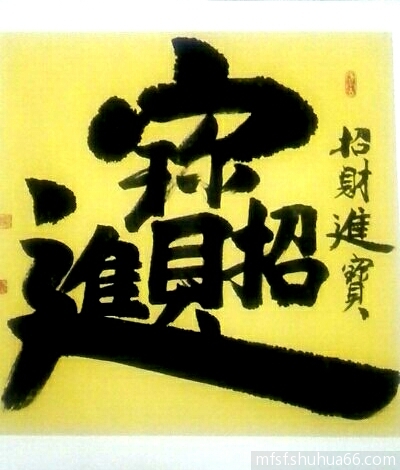 招財進寶
招財進寶
mfsfshuhua66.com